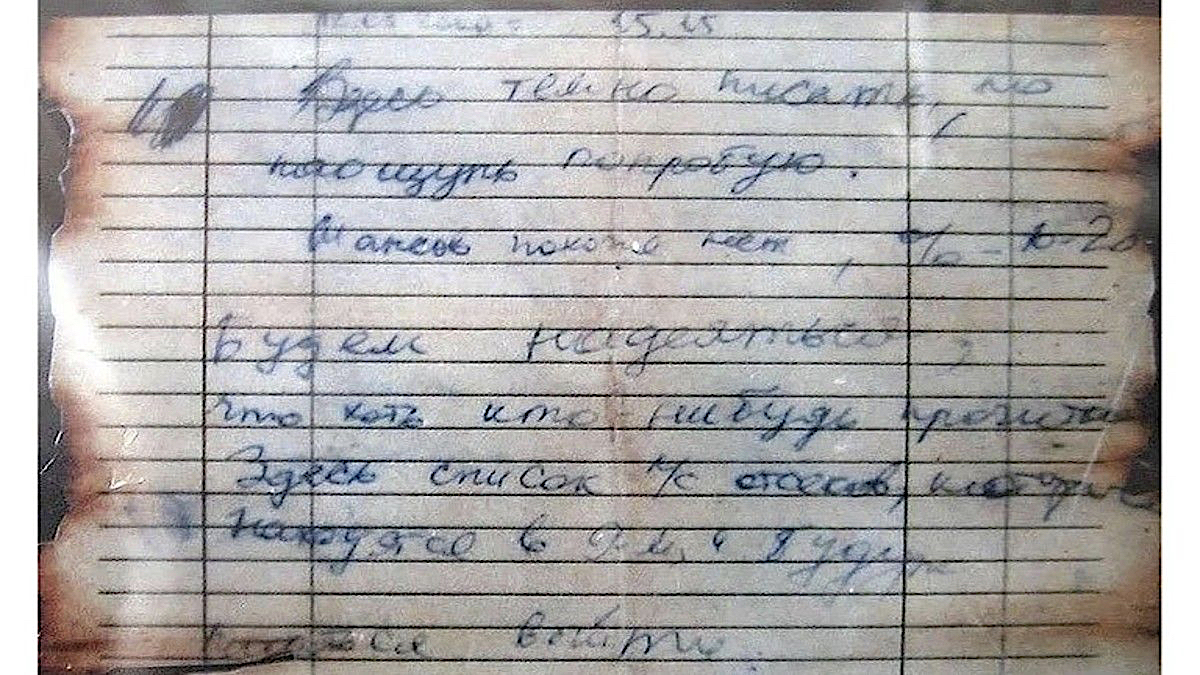 15.15
Здесь темно писать, но
наощупь попробую.
Шансов похоже нет, % - 10-20
Будем надеяться,
что хоть кто-нибудь прочитает
Здесь список л/с отсеков, которые
находятся в 9-м и будут
пытаться выйти.